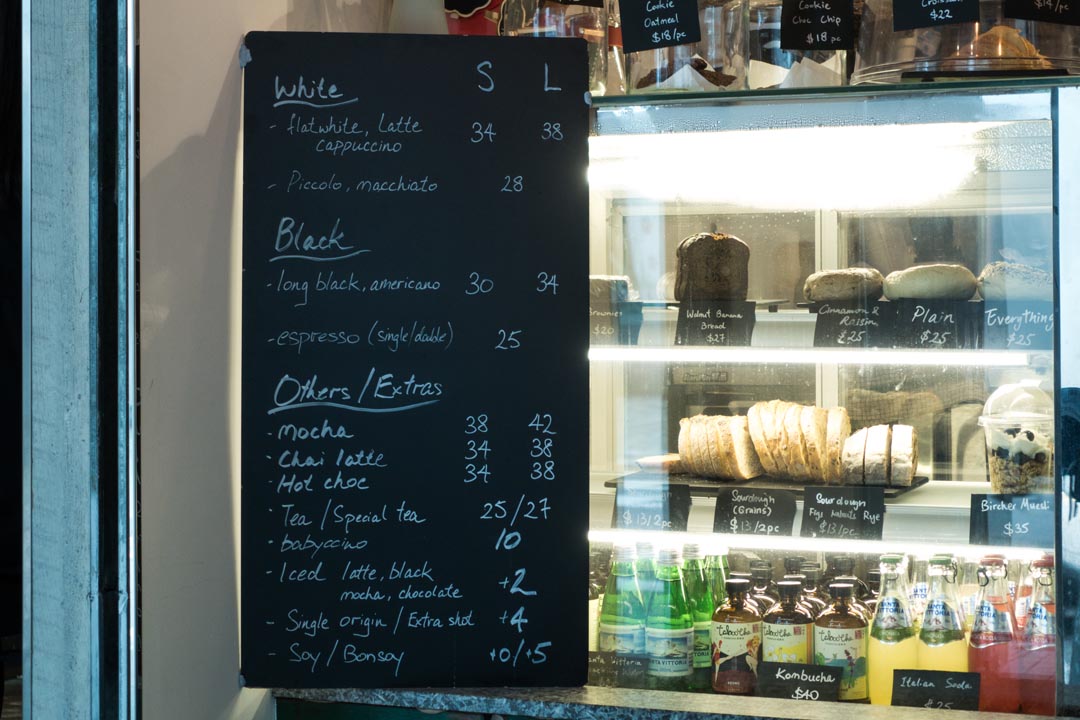 White S L
- flatwhite, Latte 34 38
cappuccino
- Piccolo, macchiato 28
Black
- long black, americano 30 34
- espresso (single/double) 25
Others/Extras
- Mocha 38 42
- Chai latte 34 38
- Hot choc 34 38
- Tea/Special tea 25/27
- babyccino 10
- Iced latte, black
mocha, chocolate +2
- Single origin/Extra shot +4
- Soy/Bonsoy +0/+5
Cookie
Oatmeal
$18/pc
Cookie
Choc Chip
$18/pc
$22
$14/pc
$20
Walnut Banana
Bread
$27
Cinnamon &
Raisin
$25
Plain
$25
Everything
$25
$13/2pc
Sourdough
(Grains)
$13/2pc
Sourdough
Figs Walnuts Rye
$13/pc
Bircher Muesli
$35
VITTORIA
taboocha
taboocha
taboocha
Kombucha
$40
Italian Soda
$25